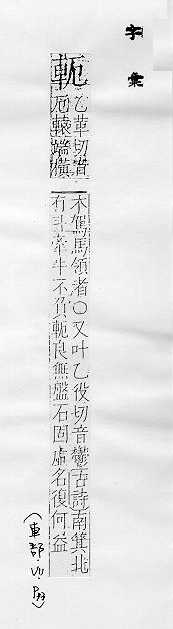 字彙
軛
乙革切音
厄轅端橫
木駕馬領者○又叶乙役切音鬱古詩南箕北
有斗牽牛不負軛良無盤石固虛名復何益
(車部